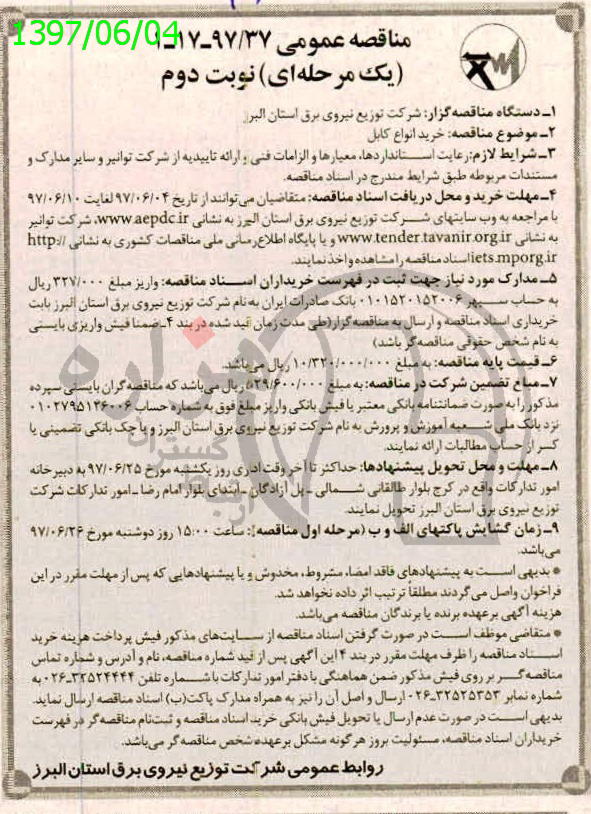 1397/06/04
مناقصه عمومی ۹۷/۳۷-۱۷-۱
(یک مرحله‌ای) نوبت دوم
۱ـ دستگاه مناقصه‌گزار: شرکت توزیع نیروی برق استان البرز
۲ـ موضوع مناقصه: خرید انواع کابل
۳ـ شرایط لازم: رعایت استانداردها، معیارها و الزامات فنی و ارائه تاییدیه از شرکت توانیر و سایر مدارک و
مستندات مربوطه طبق شرایط مندرج در اسناد مناقصه.
۴ـ مهلت خرید و محل دریافت اسناد مناقصه: متقاضیان می‌توانند از تاریخ ۹۷/۰۶/۰۴ لغایت ۹۷/۰۶/۱۰
با مراجعه به وب سایتهای شرکت توزیع نیروی برق استان البرز به نشانی www.aepdc.ir، شرکت توانیر
به نشانی www.tender.tavanir.org.ir و یا پایگاه اطلاع‌رسانی ملی مناقصات کشوری به نشانی http://
iets.mporg.ir اسناد مناقصه را مشاهده و اخذ نمایند.
۵ـ مدارک مورد نیاز جهت ثبت در فهرست خریداران اسناد مناقصه: واریز مبلغ ۳۲۷/۰۰۰ ریال
به حساب سپهر ۰۱۰۱۵۲۰۱۵۲۰۰۶ بانک صادرات ایران به نام شرکت توزیع نیروی برق استان البرز بابت
خریداری اسناد مناقصه و ارسال به مناقصه‌گزار (طی مدت زمان قید شده در بند ۴ـ ضمنا فیش واریزی بایستی
به نام شخص حقوقی مناقصه‌گر باشد)
۶ـ قیمت پایه مناقصه: به مبلغ ۱۰/۳۲۰/۰۰۰/۰۰۰ ریال می‌باشد.
۷ـ مبلغ تضمین شرکت در مناقصه: به مبلغ ۵۲۹/۶۰۰/۰۰۰ ریال می‌باشد که مناقصه‌گران بایستی سپرده
مذکور را به صورت ضمانتنامه بانکی معتبر یا فیش بانکی واریز مبلغ فوق به شماره حساب ۰۱۰۲۷۹۵۱۲۶۰۰۶
نزد بانک ملی شعبه آموزش و پرورش به نام شرکت توزیع نیروی برق استان البرز و یا چک بانکی تضمینی یا
کسر از حساب مطالبات ارائه نمایند.
۸ـ مهلت و محل تحویل پیشنهادها: حداکثر تا آخر وقت اداری روز یکشنبه مورخ ۹۷/۰۶/۲۵ به دبیرخانه
امور تدارکات واقع در کرج بلوار طالقانی شمالی ـ پل آزادگان ـ ابتدای بلوار امام رضا ـ امور تدارکات شرکت
توزیع نیروی برق استان البرز تحویل نمایند.
۹ـ زمان گشایش پاکتهای الف و ب (مرحله اول مناقصه): ساعت ۱۵:۰۰ روز دوشنبه مورخ ۹۷/۰۶/۲۶
می‌باشد.
* بدیهی است به پیشنهادهای فاقد امضا، مشروط، مخدوش و یا پیشنهادهایی که پس از مهلت مقرر در این
فراخوان واصل می‌گردند مطلقاً ترتیب اثر داده نخواهد شد.
هزینه آگهی برعهده برنده یا برندگان مناقصه می‌باشد.
* متقاضی موظف است در صورت گرفتن اسناد مناقصه از سایت‌های مذکور فیش پرداخت هزینه خرید
اسناد مناقصه را ظرف مهلت مقرر در بند ۴ این آگهی پس از قید شماره مناقصه، نام و آدرس و شماره تماس
مناقصه‌گر بر روی فیش مذکور ضمن هماهنگی با دفتر امور تدارکات با شماره تلفن ۳۲۵۲۴۴۴۴-۰۲۶ به
شماره نمابر ۳۲۵۲۵۳۵۳-۰۲۶ ارسال و اصل آن را نیز به همراه مدارک پاکت (ب) اسناد مناقصه ارسال نماید.
بدیهی است در صورت عدم ارسال یا تحویل فیش بانکی خرید اسناد مناقصه و ثبت‌نام مناقصه‌گر در فهرست
خریداران اسناد مناقصه، مسئولیت بروز هرگونه مشکل برعهده شخص مناقصه‌گر می‌باشد.
روابط عمومی شرکت توزیع نیروی برق استان البرز